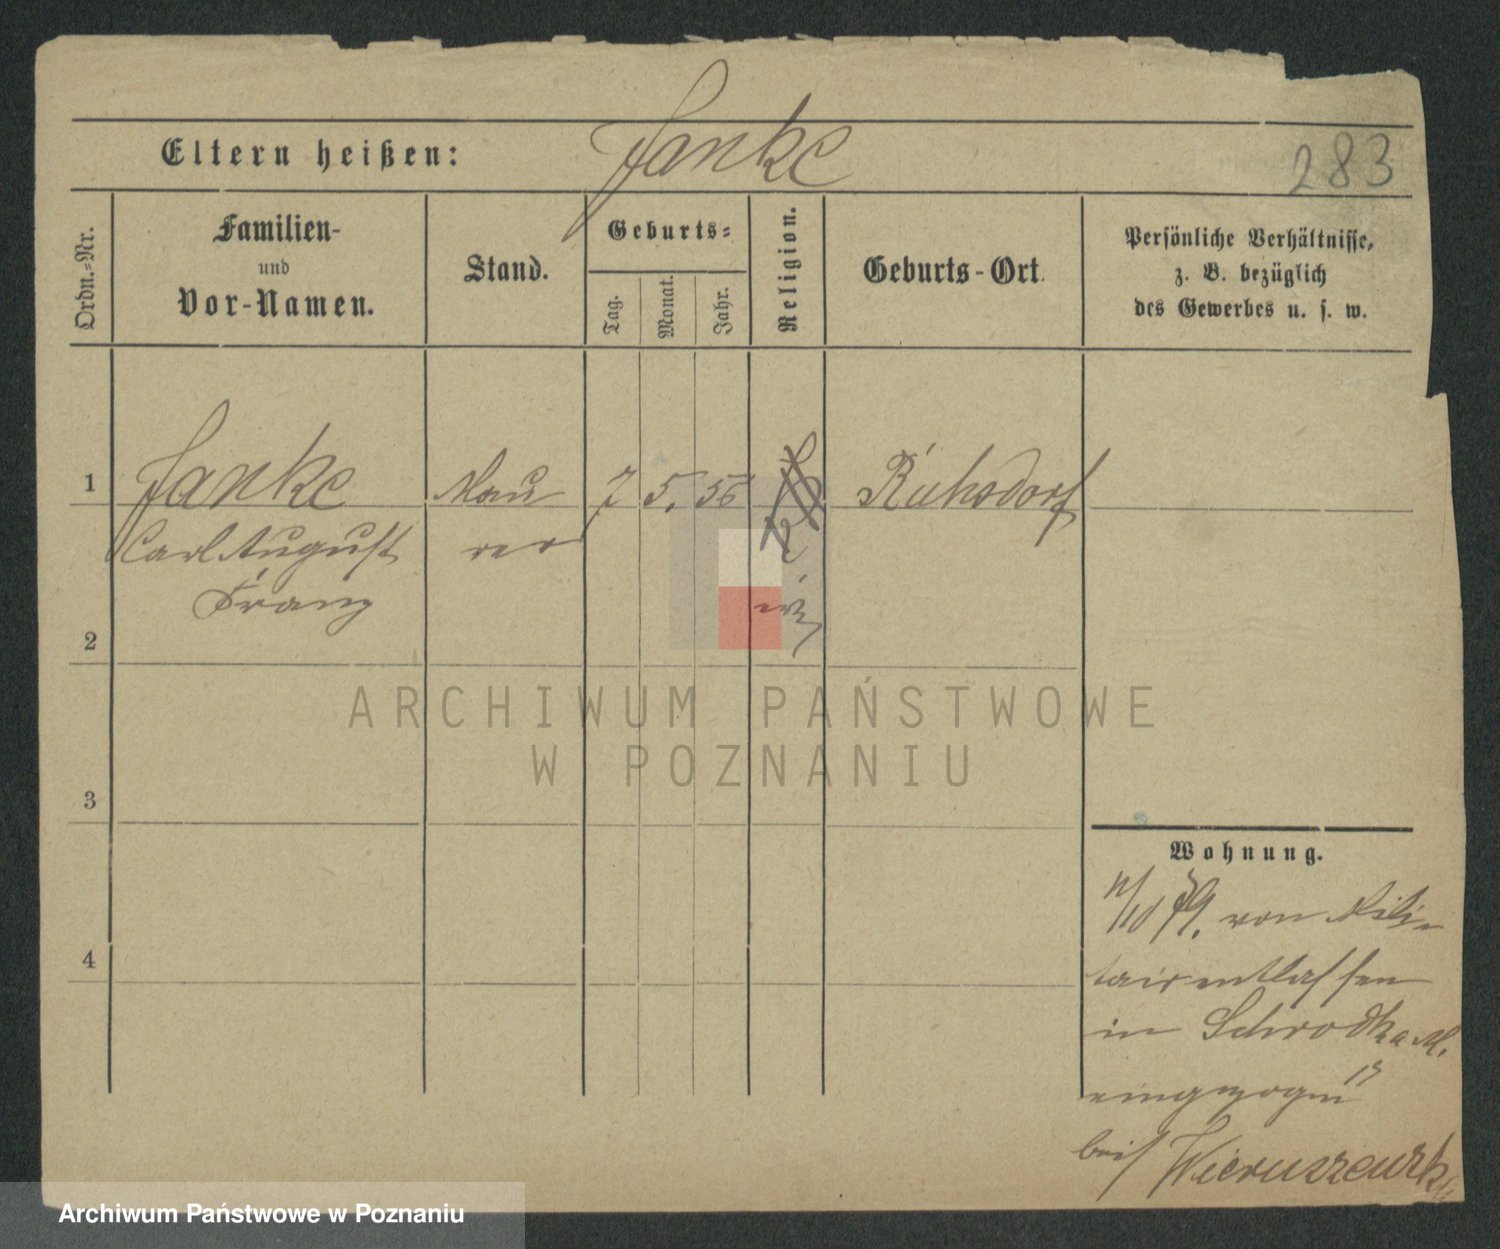 Eltern heißen: Janke
283
Ordn.-Nr.
Familien-
und
Vor-Namen.
Stand.
Geburts-
Tag.
Monat.
Jahr.
Religion.
Geburts-Ort.
Persönliche Verhältnisse,
z. B. bezüglich
des Gewerbes u. s. w.
1 Janke Mau 7 5. 56 Rühsdorf
Carl August rer
Franz
2
3
4
Wohnung.
11/10 79. von Mili-
tair entlassen
in Schrodka M.
eingezogen 17
bei Wieruszewski
ARCHIWUM PAŃSTWOWE
W POZNANIU
Archiwum Państwowe w Poznaniu